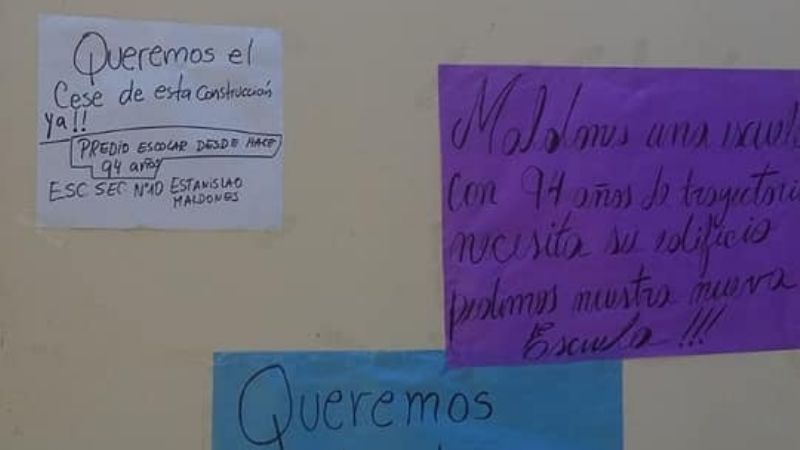 Queremos el
Cese de esta Construcción
Ya!!
PREDIO ESCOLAR DESDE HACE
94 años
ESC SEC Nº10 ESTANISLAO
MALDONES
Maldones una escuela
con 94 años de trayectoria
necesita su edificio
pedimos nuestra nueva
Escuela !!!
Queremos